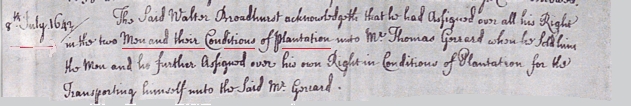 8th July 1642 The Said Walter Broadhurst acknowledgeth that he had Assigned over all his Right
in the two Men and their Conditions of Plantation unto Mr Thomas Gerrard when he Sold him
the Men and he further Assigned over his own Right in Conditions of Plantation for the
Transporting himself unto the Said Mr. Gerrard.